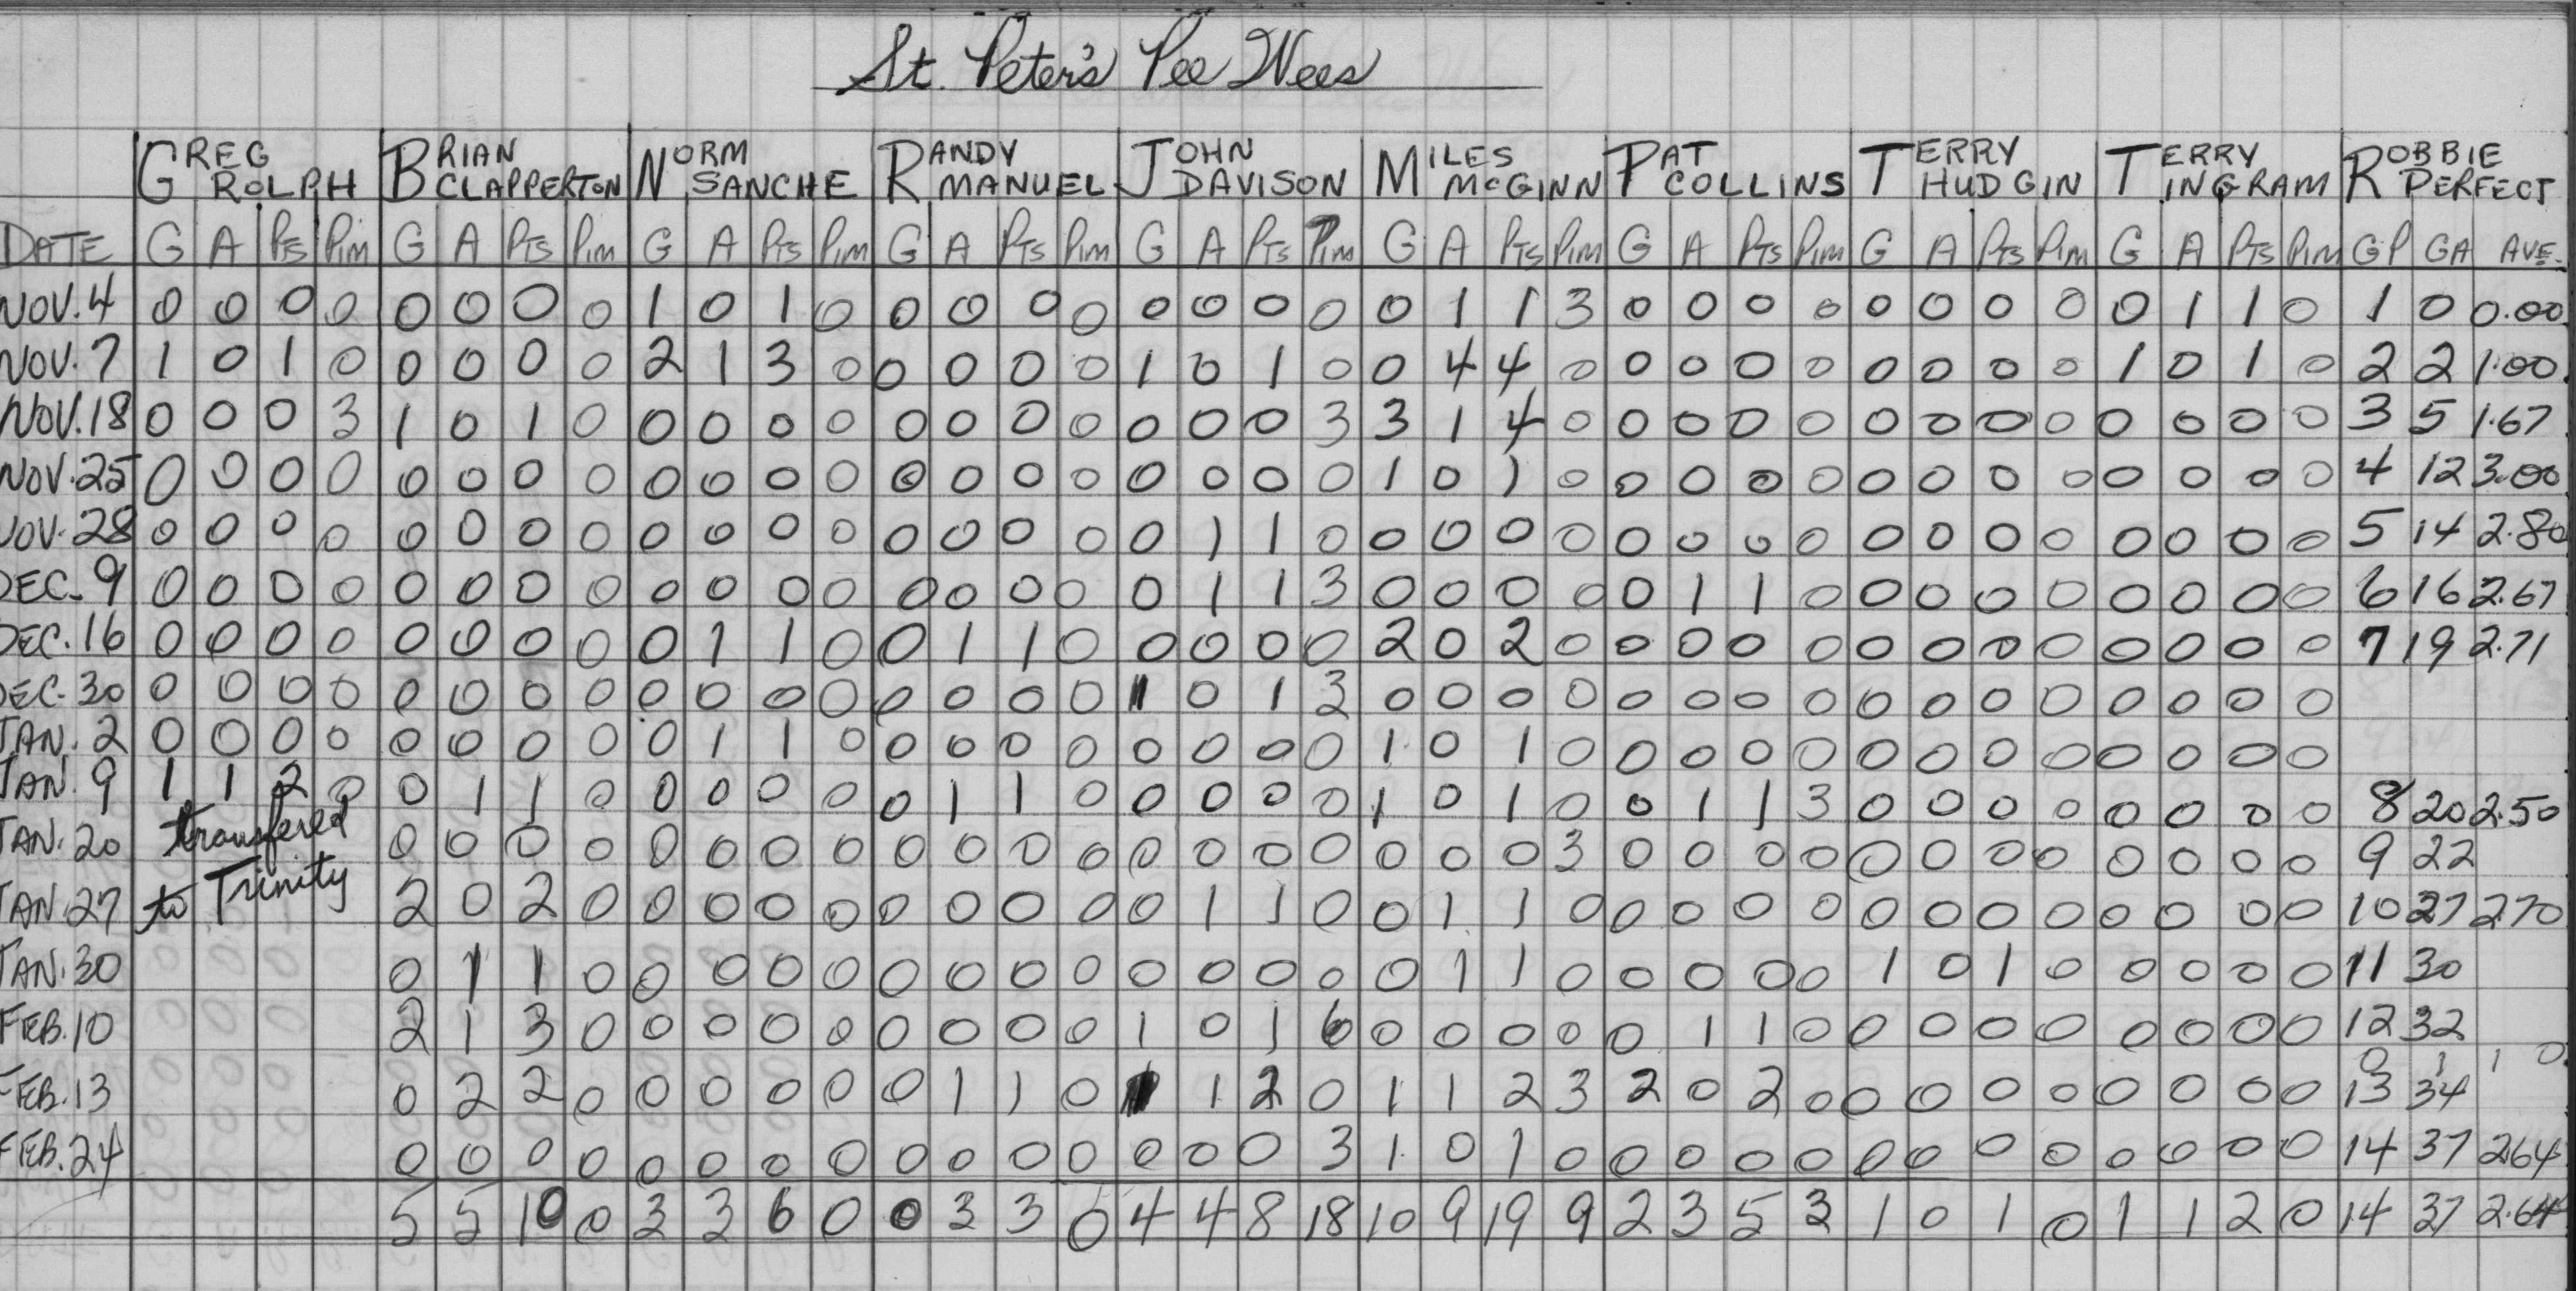 St. Peter's Pee Wees
GREG ROLPH BRIAN CLAPPERTON NORM SANCHE RANDY MANUEL JOHN DAVISON MILES McGINN PAT COLLINS TERRY HUDGIN TERRY INGRAM ROBBIE PERFECT
DATE G A PTS PIM G A PTS PIM G A PTS PIM G A PTS PIM G A PTS PIM G A PTS PIM G A PTS PIM G A PTS PIM G A PTS PIM GP GA AVE.
NOV. 4 0 0 0 0 0 0 0 0 1 0 1 0 0 0 0 0 0 0 0 0 0 1 1 3 0 0 0 0 0 0 0 0 0 1 1 0 1 0 0.00
NOV. 7 1 0 1 0 0 0 0 0 2 1 3 0 0 0 0 0 1 0 1 0 0 4 4 0 0 0 0 0 0 0 0 0 1 0 1 0 2 2 1.00
NOV. 18 0 0 0 3 1 0 1 0 0 0 0 0 0 0 0 0 0 0 0 3 3 1 4 0 0 0 0 0 0 0 0 0 0 0 0 0 3 5 1.67
NOV. 25 0 0 0 0 0 0 0 0 0 0 0 0 0 0 0 0 0 0 0 0 1 0 1 0 0 0 0 0 0 0 0 0 0 0 0 0 4 12 3.00
NOV. 28 0 0 0 0 0 0 0 0 0 0 0 0 0 0 0 0 0 1 1 0 0 0 0 0 0 0 0 0 0 0 0 0 0 0 0 0 5 14 2.80
DEC. 9 0 0 0 0 0 0 0 0 0 0 0 0 0 0 0 0 0 1 1 3 0 0 0 0 0 1 1 0 0 0 0 0 0 0 0 0 6 16 2.67
DEC. 16 0 0 0 0 0 0 0 0 0 1 1 0 0 1 1 0 0 0 0 0 2 0 2 0 0 0 0 0 0 0 0 0 0 0 0 0 7 19 2.71
DEC. 30 0 0 0 0 0 0 0 0 0 0 0 0 0 0 0 0 1 0 1 3 0 0 0 0 0 0 0 0 0 0 0 0 0 0 0 0
JAN. 2 0 0 0 0 0 0 0 0 0 1 1 0 0 0 0 0 0 0 0 0 1 0 1 0 0 0 0 0 0 0 0 0 0 0 0 0
JAN. 9 1 1 2 0 0 1 1 0 0 0 0 0 0 1 1 0 0 0 0 0 1 0 1 0 0 1 1 3 0 0 0 0 0 0 0 0 8 20 2.50
JAN. 20 transfered 0 0 0 0 0 0 0 0 0 0 0 0 0 0 0 0 0 0 0 3 0 0 0 0 0 0 0 0 0 0 0 0 9 22
JAN. 27 to Trinity 2 0 2 0 0 0 0 0 0 0 0 0 0 1 1 0 0 1 1 0 0 0 0 0 0 0 0 0 0 0 0 0 10 27 2.70
JAN. 30 0 1 1 0 0 0 0 0 0 0 0 0 0 0 0 0 0 1 1 0 0 0 0 0 1 0 1 0 0 0 0 0 11 30
FEB. 10 2 1 3 0 0 0 0 0 0 0 0 0 1 0 1 6 0 0 0 0 0 1 1 0 0 0 0 0 0 0 0 0 12 32
0 1 1 0
FEB. 13 0 2 2 0 0 0 0 0 0 1 1 0 1 1 2 0 1 1 2 3 2 0 2 0 0 0 0 0 0 0 0 0 13 34
FEB. 24 0 0 0 0 0 0 0 0 0 0 0 0 0 0 0 3 1 0 1 0 0 0 0 0 0 0 0 0 0 0 0 0 14 37 2.64
5 5 10 0 3 3 6 0 0 3 3 0 4 4 8 18 10 9 19 9 2 3 5 3 1 0 1 0 1 1 2 0 14 37 2.64